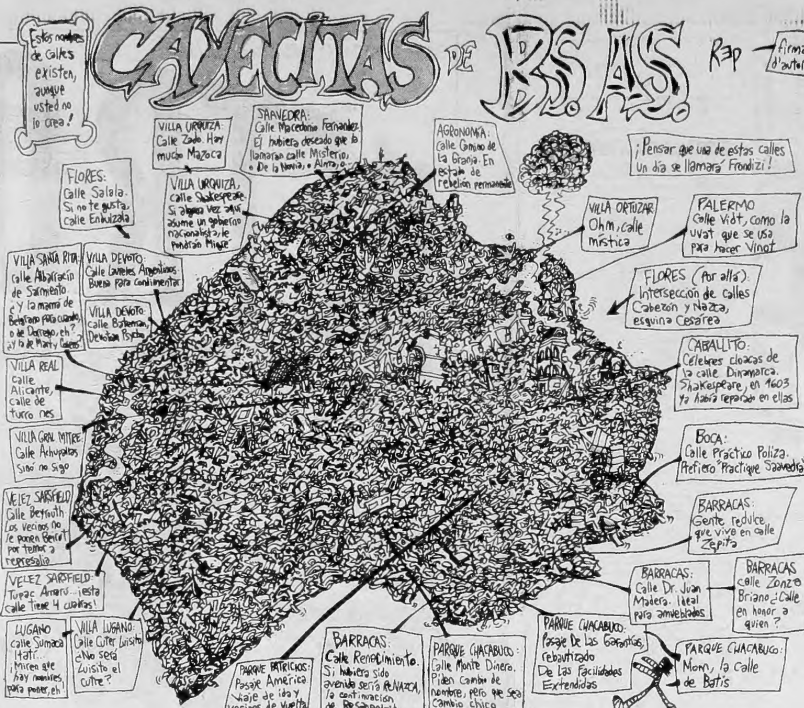 Estos nombres
de calles
existen,
aunque
usted no
lo crea!
CAYECITAS DE BS. AS.
REP
firma
d'autor
VILLA URQUIZA:
Calle Zado. Hay
mucho Mazoca
SAAVEDRA:
Calle Macedonio Fernández.
Él hubiera deseado que la
llamaran calle Misterio,
o De la Novia, o Almita, o
AGRONOMÍA:
Calle Camino de
La Granja. En
estado de
rebelión permanente
¡Pensar que una de estas calles
un día se llamará Frondizi!
FLORES:
Calle Salala.
Si no te gusta,
calle Enhuizala
VILLA URQUIZA,
calle Shakespeare.
Si alguna vez aquí
asume un gobierno
nacionalista, le
pondrán Migré
VILLA ORTUZAR
Ohm, calle
mística
PALERMO
Calle Vidt, como la
uvat que se usa
para hacer Vinot
VILLA SANTA RITA:
calle Albarracín
de Sarmiento.
¿Y la mamá de
Belgrano para cuando,
o de Dorrego, eh?
VILLA DEVOTO:
Calle Laureles Argentinos.
Buena para condimentar
VILLA DEVOTO:
calle Bateman,
FLORES (Por allá):
Intersección de calles
Cabezón y Nazca,
esquina Cesárea
CABALLITO:
Célebres cloacas de
la calle Dinamarca.
Shakespeare, en 1603
ya había reparado en ellas
VILLA REAL
calle
Alicante,
calle de
turro nes
VILLA GRAL MITRE:
Calle Achupallas
Sinó no sigo
BOCA:
Calle Práctico Poliza.
Prefiero Practique Saavedra
VELEZ SARSFIELD
Calle Beyruth
Los vecinos no
le ponen Beirut
por temor a
represalia
BARRACAS:
Gente reducle
que vive en calle
Zepita
VELEZ SARSFIELD:
Tupac Amaru ¡esta
calle tiene 4 cuadras!
BARRACAS:
Calle Dr. Juan
Madera. Ideal
para amueblados
BARRACAS
calle Zonza
Briano ¿Calle
en honor a
quien?
LUGANO
calle Sumaca
Itatí.
¡Miren que
hay nombres
para poner, eh!
VILLA LUGANO:
Calle Cúter Luisito
¿No será
Luisito el
cutre?
PARQUE PATRICIOS:
Pasaje América
Viaje de ida y
BARRACAS:
Calle Renacimiento.
Si hubiera sido
avenida sería RENAZCA,
la continuación
PARQUE CHACABUCO:
Calle Monte Dinero.
Piden cambio de
nombre, pero que sea
cambio chico
PARQUE CHACABUCO:
Pasaje De Las Garantías,
rebautizado
De Las Facilidades
Extendidas
PARQUE CHACABUCO:
Mom, la calle
de Batis